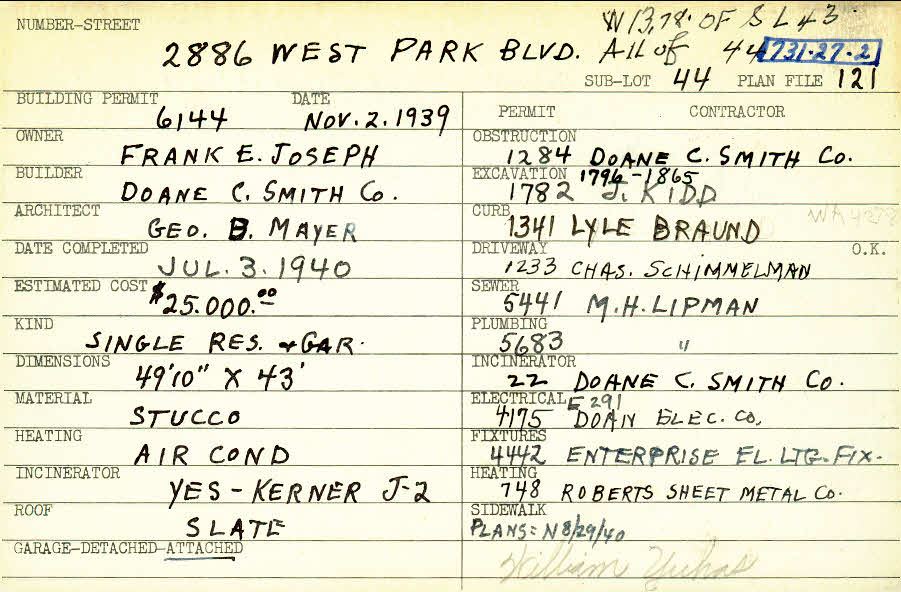 NUMBER-STREET
W 13.78' OF S L 43
2886 WEST PARK BLVD. All of 44 731-27-2
SUB-LOT 44 PLAN FILE 121
BUILDING PERMIT 6144 DATE NOV. 2. 1939
OWNER FRANK E. JOSEPH
BUILDER DOANE C. SMITH CO.
ARCHITECT GEO. B. MAYER
DATE COMPLETED JUL. 3. 1940
ESTIMATED COST $25.000.00
KIND SINGLE RES. & GAR.
DIMENSIONS 49'10" X 43'
MATERIAL STUCCO
HEATING AIR COND
INCINERATOR YES - KERNER J-2
ROOF SLATE
GARAGE-DETACHED-ATTACHED
PERMIT CONTRACTOR
OBSTRUCTION 1284 DOANE C. SMITH CO.
EXCAVATION 1796-1865
1782 J. KIDD
CURB 1341 LYLE BRAUND WA 4278
DRIVEWAY O.K.
1233 CHAS. SCHIMMELMAN
SEWER 5441 M.H. LIPMAN
PLUMBING 5683 "
INCINERATOR 22 DOANE C. SMITH CO.
ELECTRICAL E 291
4175 DOAN ELEC. CO.
FIXTURES 4442 ENTERPRISE EL. LTG. FIX.
HEATING 748 ROBERTS SHEET METAL CO.
SIDEWALK
PLANS = N 8/29/40
William Yuhas